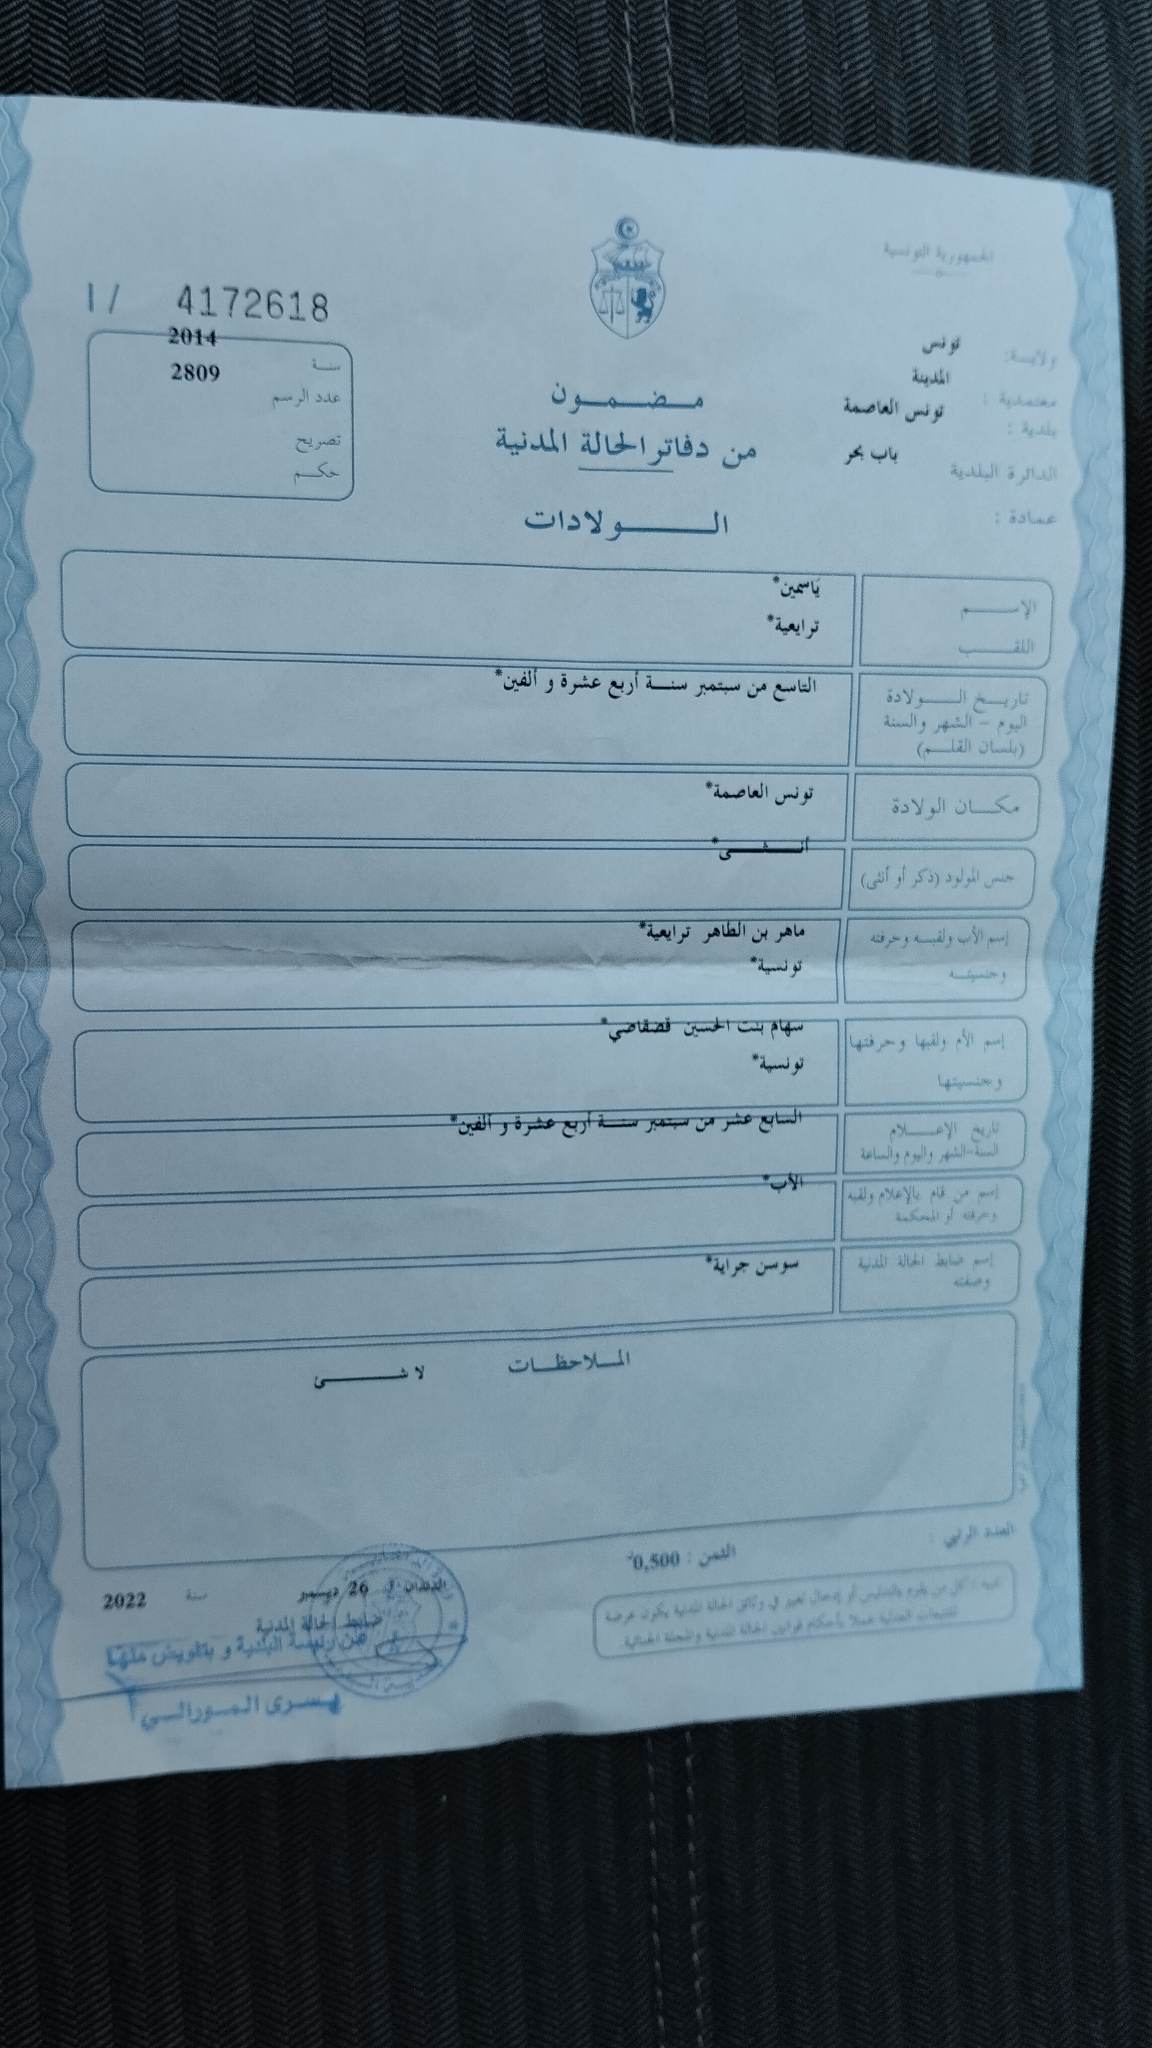 الجمهورية التونسية
I/ 4172618
ولاية: تونس
معتمدية : المدينة
بلدية : تونس العاصمة
الدائرة البلدية باب بحر
عمادة :
سنة 2014
عدد الرسم 2809
تصريح
حكم
مضمون
من دفاتر الحالة المدنية
الولادات
الإسم يَاسمين*
اللقب ترايعية*
تاريخ الولادة التاسع من سبتمبر سنة أربع عشرة و ألفين*
اليوم - الشهر والسنة
(بلسان القلم)
مكان الولادة تونس العاصمة*
جنس المولود (ذكر أو أنثى) أنثى*
إسم الأب ولقبه وحرفته ماهر بن الطاهر ترايعية*
وجنسيته تونسية*
إسم الأم ولقبها وحرفتها سهام بنت الحسين قصقاصي*
وجنسيتها تونسية*
تاريخ الإعلام السابع عشر من سبتمبر سنة أربع عشرة و ألفين*
السنة-الشهر واليوم والساعة
إسم من قام بالإعلام ولقبه الأب*
وحرفته أو المحكمة
إسم ضابط الحالة المدنية سوسن جراية*
وصفته
الملاحظات
لا شئ
العدد الرتبي :
الثمن : 0,500د
تنبيه : كل من يقوم بالتدليس أو إدخال تغيير في وثائق الحالة المدنية يكون عرضة
للتتبعات العدلية عملا بأحكام قوانين الحالة المدنية والمجلة الجنائية.
26 ديسمبر سنة 2022
ضابط الحالة المدنية
عن رئيسة البلدية و بتفويض منها
يسرى المورالي